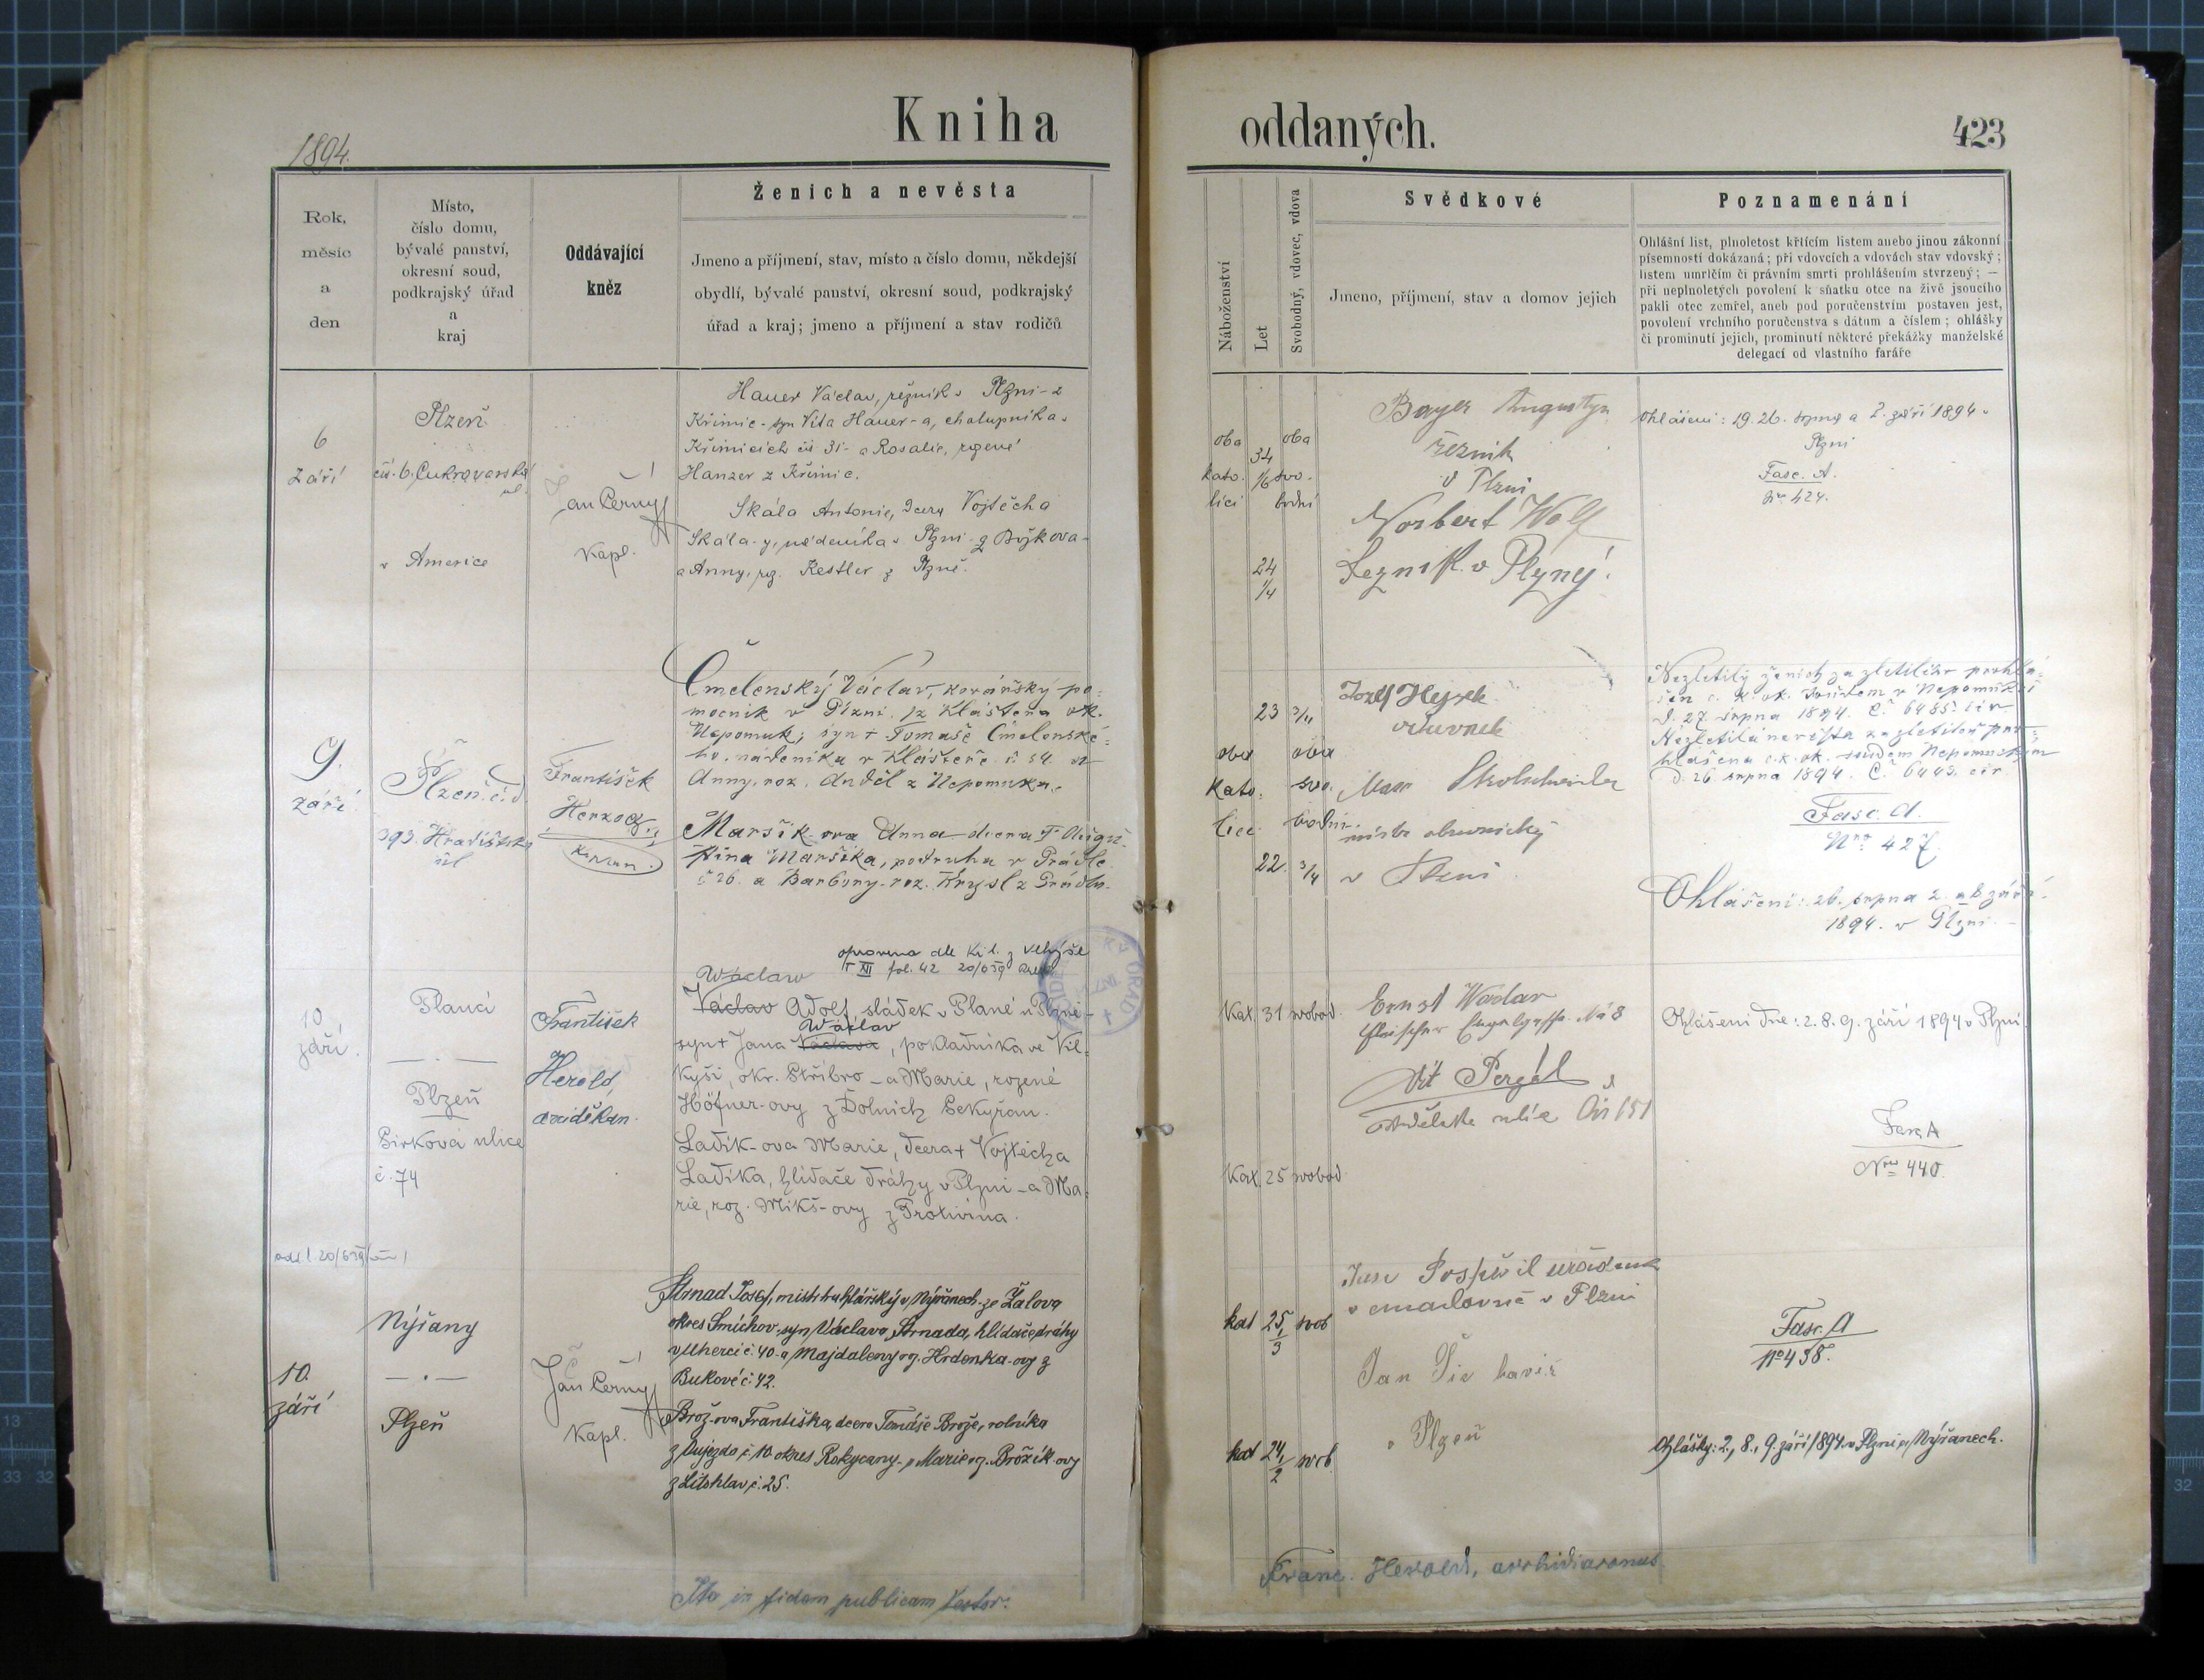 1894.
Kniha
oddaných.
423
Rok,
měsíc
a
den
Místo,
číslo domu,
bývalé panství,
okresní soud,
podkrajský úřad
a
kraj
Oddávající
kněz
Ženich a nevěsta
Jmeno a příjmení, stav, místo a číslo domu, někdejší
obydlí, bývalé panství, okresní soud, podkrajský
úřad a kraj; jmeno a příjmení a stav rodičů
Náboženství
Let
Svobodný, vdovec, vdova
Svědkové
Jmeno, příjmení, stav a domov jejich
Poznamenání
Ohlášní list, plnoletost křticím listem anebo jinou zákonní
písemností dokázaná; při vdovcích a vdovách stav vdovský;
listem umrlčím či právním smrti prohlášením stvrzený; —
při neplnoletých povolení k sňatku otce na živě jsoucího
pakli otec zemřel, aneb pod poručenstvím postaven jest,
povolení vrchního poručenstva s dátum a číslem; ohlášky
či prominutí jejich, prominutí některé překážky manželské
delegací od vlastního faráře
6
září
Plzeň
čís. 6. Cukrovarská
ul.
v Americe
Jan Černý
Kapl.
Hauer Václav, řezník v Plzni - z
Křimic - syn Víta Hauer-a, chalupníka v
Křimicích čís 31 - a Rosalie, rozené
Hanzer z Křimic.
Skála Antonie, dcera Vojtěcha
Skála-y, nádeníka v Plzni - z
a Anny, roz. Kestler z Plzně.
oba
kato.
líci
34
1/6
24
1/4
oba
svo-
bodní
Bayer Augustyn
řezník
v Plzni
Norbert Wolf
Řezník v
Ohlášení: 19. 26. srpna a 2. září 1894 v
Plzni
Fasc. A.
Nro 424.
9.
září
Plzeň č. d.
393. Hradištská
ul
František
Herzog,
kaplan.
Čmelenský Václav, kovářský po-
mocník v Plzni, z Kláštera ok.
Nepomuk; syn + Tomaše Čmelenské-
ho, nádeníka v Klášteře č 54 a
Anny, roz. Anděl z Nepomuka.
Maršík-ova Anna dcera + Augu-
stina Maršíka, podruha v Prádle
č 26. a Barbory roz. z Prádla.
oba
kato.
lící
23 3/11
22 3/4
oba
svo.
bodní.
Josef Hejsek
obuvník
Max
mistr obuvnický
v Plzni
Nezletilý ženich za zletilého prohlá-
šen c. k. ok. soudem v Nepomuku
d. 27. srpna 1894. Č. 6455 civ.
Nezletilá nevěsta za zletilou pro-
hlášena c. k. ok. soudem Nepomuckým
d. 26 srpna 1894. Č. 6443. civ.
Fasc. A.
Nro 427.
Ohlášení: 26. srpna 2. a 8. září
1894. v Plzni.
10
září.
Planá
Plzeň
Sirková ulice
č. 74
František
Herold,
arciděkan.
oprava dle kř. l. z Vlkýše
T XII fol. 42 20/6 39
Wáclaw
Václav Adolf, sládek v Plané u Plzně -
Wáclav
syn + Jana Václava, pokladníka ve Vil-
kyši, okr. Stříbro - a Marie, rozené
Höfner-ovy z Dolních Sekyřan.
Ladik-ova Marie, dcera + Vojtěcha
Ladíka, hlídače dráhy v Plzni - a Ma-
rie, roz. Mikš-ovy z Protivína.
Kat. 31 svobod.
Kat. 25 svobod
Ernst Waclav
Vít
ulice Čís 151
Ohlášení dne: 2. 8. 9. září 1894 v Plzni.
Fasc A
Nro 440.
10.
září
Nýřany
Plzeň
Jan Černý
Kapl.
Strnad Josef, mistr truhlářský v Nýřanech ze Žalova
okres Smíchov, syn Václava Strnada, hlídače dráhy
v Uherci č. 40. a Majdaleny roz. Hrdonka-ovy z
Bukové č. 42.
Brož-ova Františka, dcera Tomáše Brože, rolníka
z Oujezda č. 10 okres Rokycany - a Marie roz. Brožík-ovy
z Litohlav, č. 25.
kat 25 1/3 svob
kat 24 1/2 svob.
Pospíšil uředník
v Plzni
Jan havíř
v Plzeň
Fasc. A
No 438.
Ohlášky: 2., 8., 9. září 1894. v Plzni a Nýřanech.
Ita in fidem publicam testor:
Franc. Herold, archidiaconus.